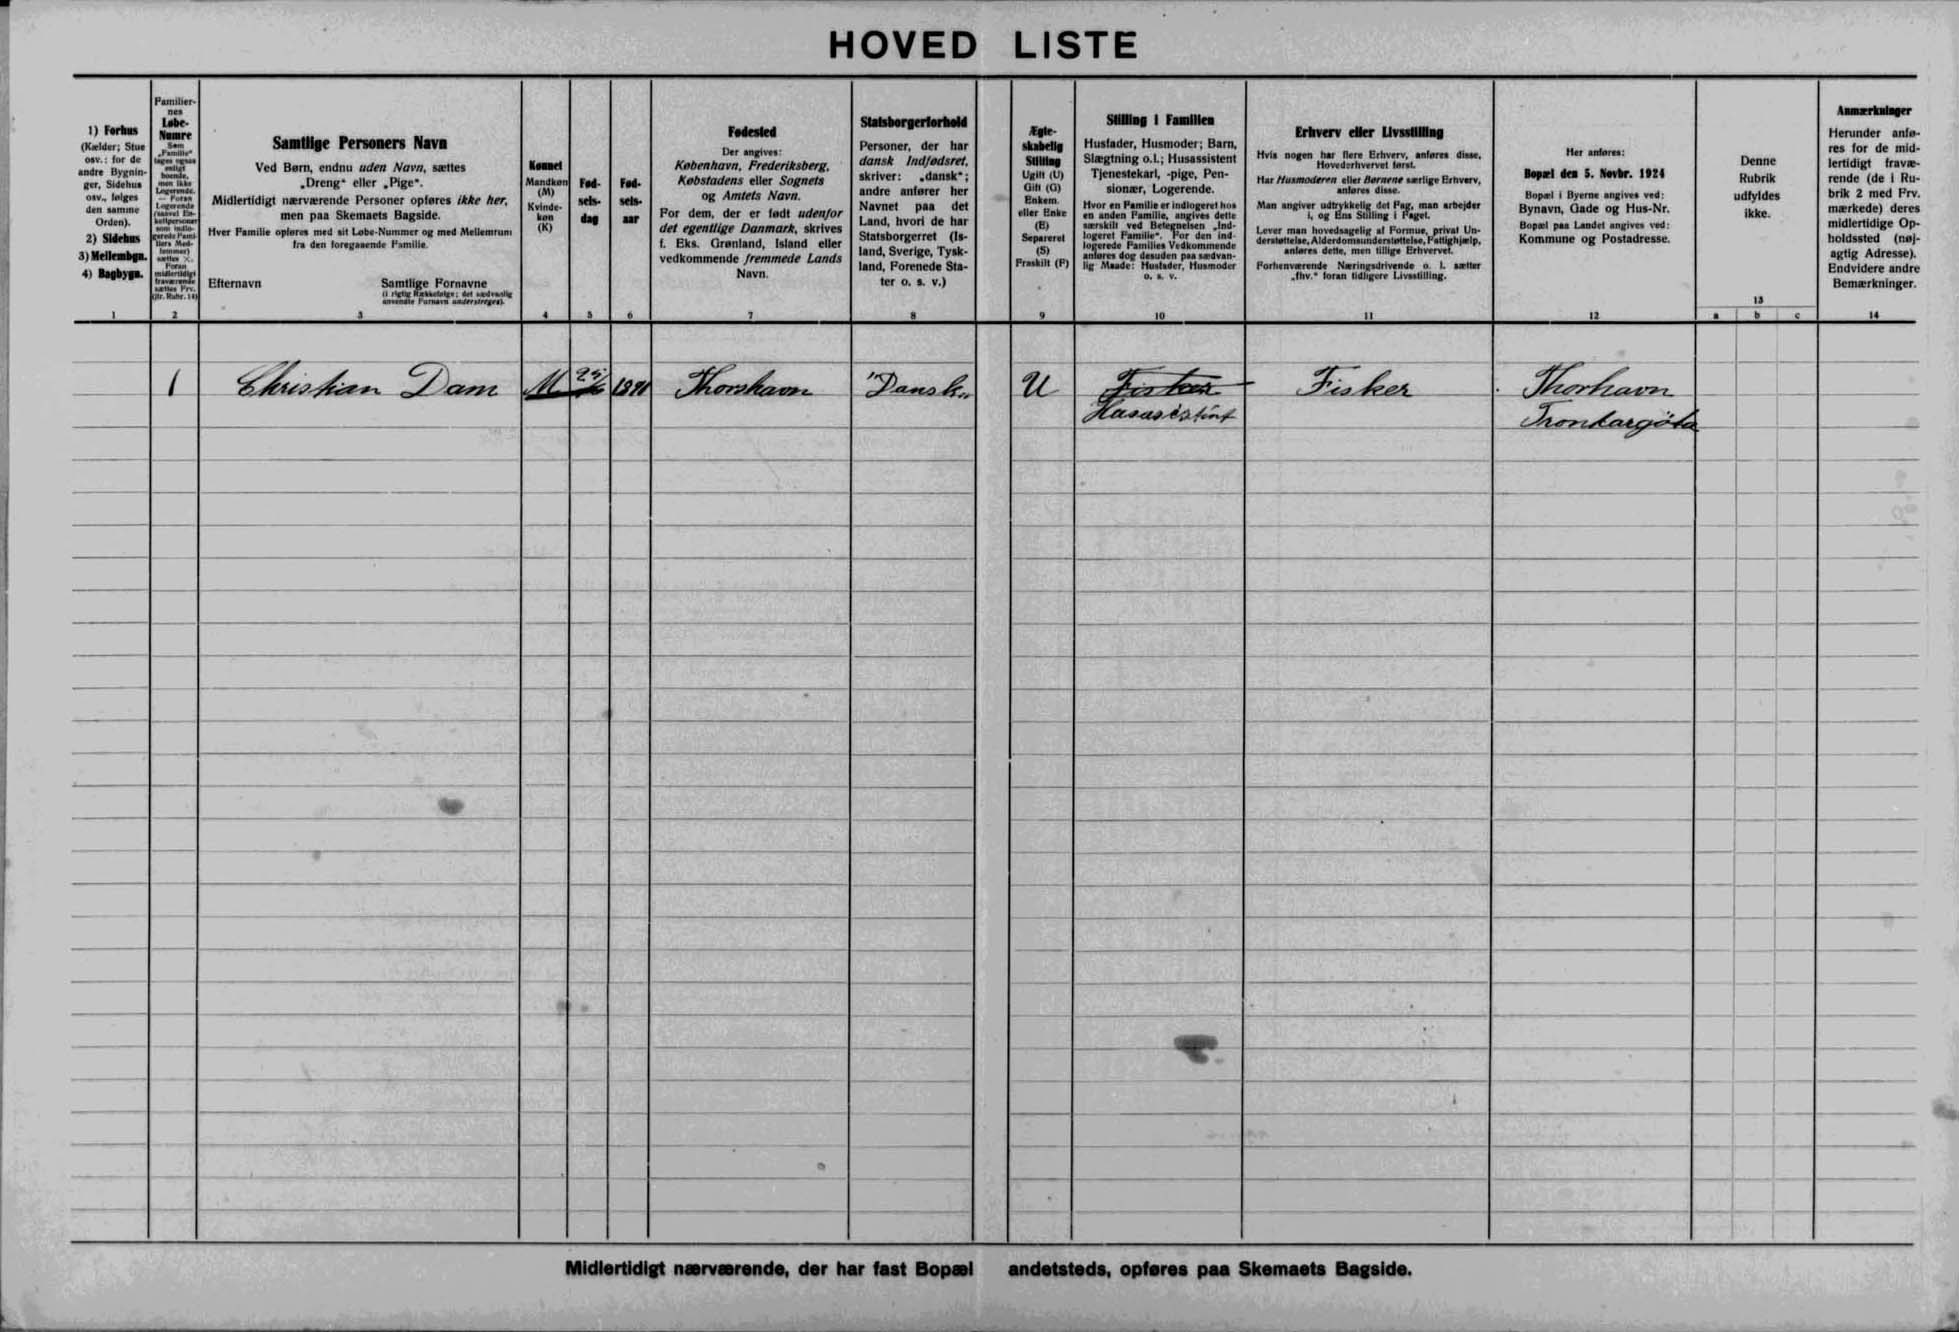 HOVED LISTE
1) Forhus
(Kælder; Stue
osv.: for de
andre Bygnin-
ger, Sidehus
osv., følges
den samme
Orden).
2) Sidehus
3) Mellembgn.
4) Bagbygn.
1
Familier-
nes
Løbe-
Numre
Som
„Familie“
tages ogsaa
enligt
boende,
men ikke
Logerende.
— Foran
Logerende
(saavel En-
keltpersoner
som indlo-
gerede Fami-
liers Med-
lemmer)
sættes ×.
Foran
midlertidigt
fraværende
sættes Frv.
(jfr. Rubr. 14)
2
Samtlige Personers Navn
Ved Børn, endnu uden Navn, sættes
„Dreng“ eller „Pige“.
Midlertidigt nærværende Personer opføres ikke her,
men paa Skemaets Bagside.
Hver Familie opføres med sit Løbe-Nummer og med Mellemrum
fra den foregaaende Familie.
Efternavn Samtlige Fornavne
(i rigtig Rækkefølge; det sædvanlig
anvendte Fornavn understreges).
3
Kønnet
Mandkøn
(M)
Kvinde-
køn
(K)
4
Fød-
sels-
dag
5
Fød-
sels-
aar
6
Fødested
Der angives:
København, Frederiksberg,
Købstadens eller Sognets
og Amtets Navn.
For dem, der er født udenfor
det egentlige Danmark, skrives
f. Eks. Grønland, Island eller
vedkommende fremmede Lands
Navn.
7
Statsborgerforhold
Personer, der har
dansk Indfødsret,
skriver: „dansk“;
andre anfører her
Navnet paa det
Land, hvori de har
Statsborgerret (Is-
land, Sverige, Tysk-
land, Forenede Sta-
ter o. s. v.)
8
Ægte-
skabelig
Stilling
Ugift (U)
Gift (G)
Enkem.
eller Enke
(E)
Separeret
(S)
Fraskilt (F)
9
Stilling i Familien
Husfader, Husmoder; Barn,
Slægtning o.l.; Husassistent
Tjenestekarl, -pige, Pen-
sionær, Logerende.
Hvor en Familie er indlogeret hos
en anden Familie, angives dette
særskilt ved Betegnelsen „Ind-
logeret Familie“. For den ind-
logerede Families Vedkommende
anføres dog desuden paa sædvan-
lig Maade: Husfader, Husmoder
o. s. v.
10
Erhverv eller Livsstilling
Hvis nogen har flere Erhverv, anføres disse,
Hovederhvervet først.
Har Husmoderen eller Børnene særlige Erhverv,
anføres disse.
Man angiver udtrykkelig det Fag, man arbejder
i, og Ens Stilling i Faget.
Lever man hovedsagelig af Formue, privat Un-
derstøttelse, Alderdomsunderstøttelse, Fattighjælp,
anføres dette, men tillige Erhvervet.
Forhenværende Næringsdrivende o. l. sætter
„fhv.“ foran tidligere Livsstilling.
11
Her anføres:
Bopæl den 5. Novbr. 1924
Bopæl i Byerne angives ved:
Bynavn, Gade og Hus-Nr.
Bopæl paa Landet angives ved:
Kommune og Postadresse.
12
Denne
Rubrik
udfyldes
ikke.
13
a b c
Anmærkninger
Herunder anfø-
res for de mid-
lertidigt fravæ-
rende (de i Ru-
brik 2 med Frv.
mærkede) deres
midlertidige Op-
holdssted (nøj-
agtig Adresse).
Endvidere andre
Bemærkninger.
14
1 Christian Dam M Thorshavn "Dansk" U Fisker Fisker Thorhavn
Hasasistint Trondargøta
Midlertidigt nærværende, der har fast Bopæl andetsteds, opføres paa Skemaets Bagside.